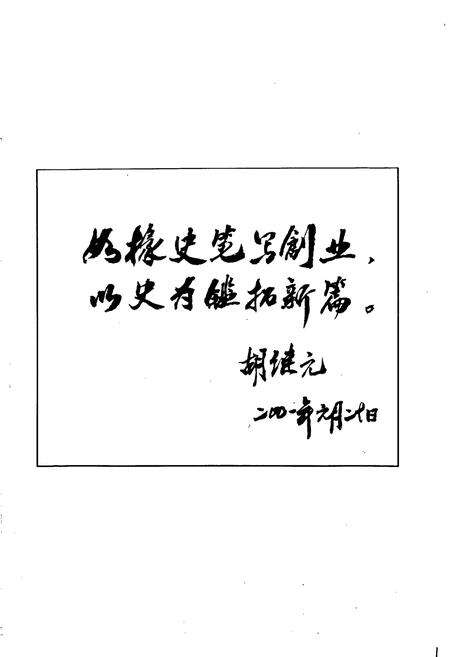 如椽史笔写創业,
以史为鑑拓新篇。
胡继元
二〇〇一年六月二十日
1